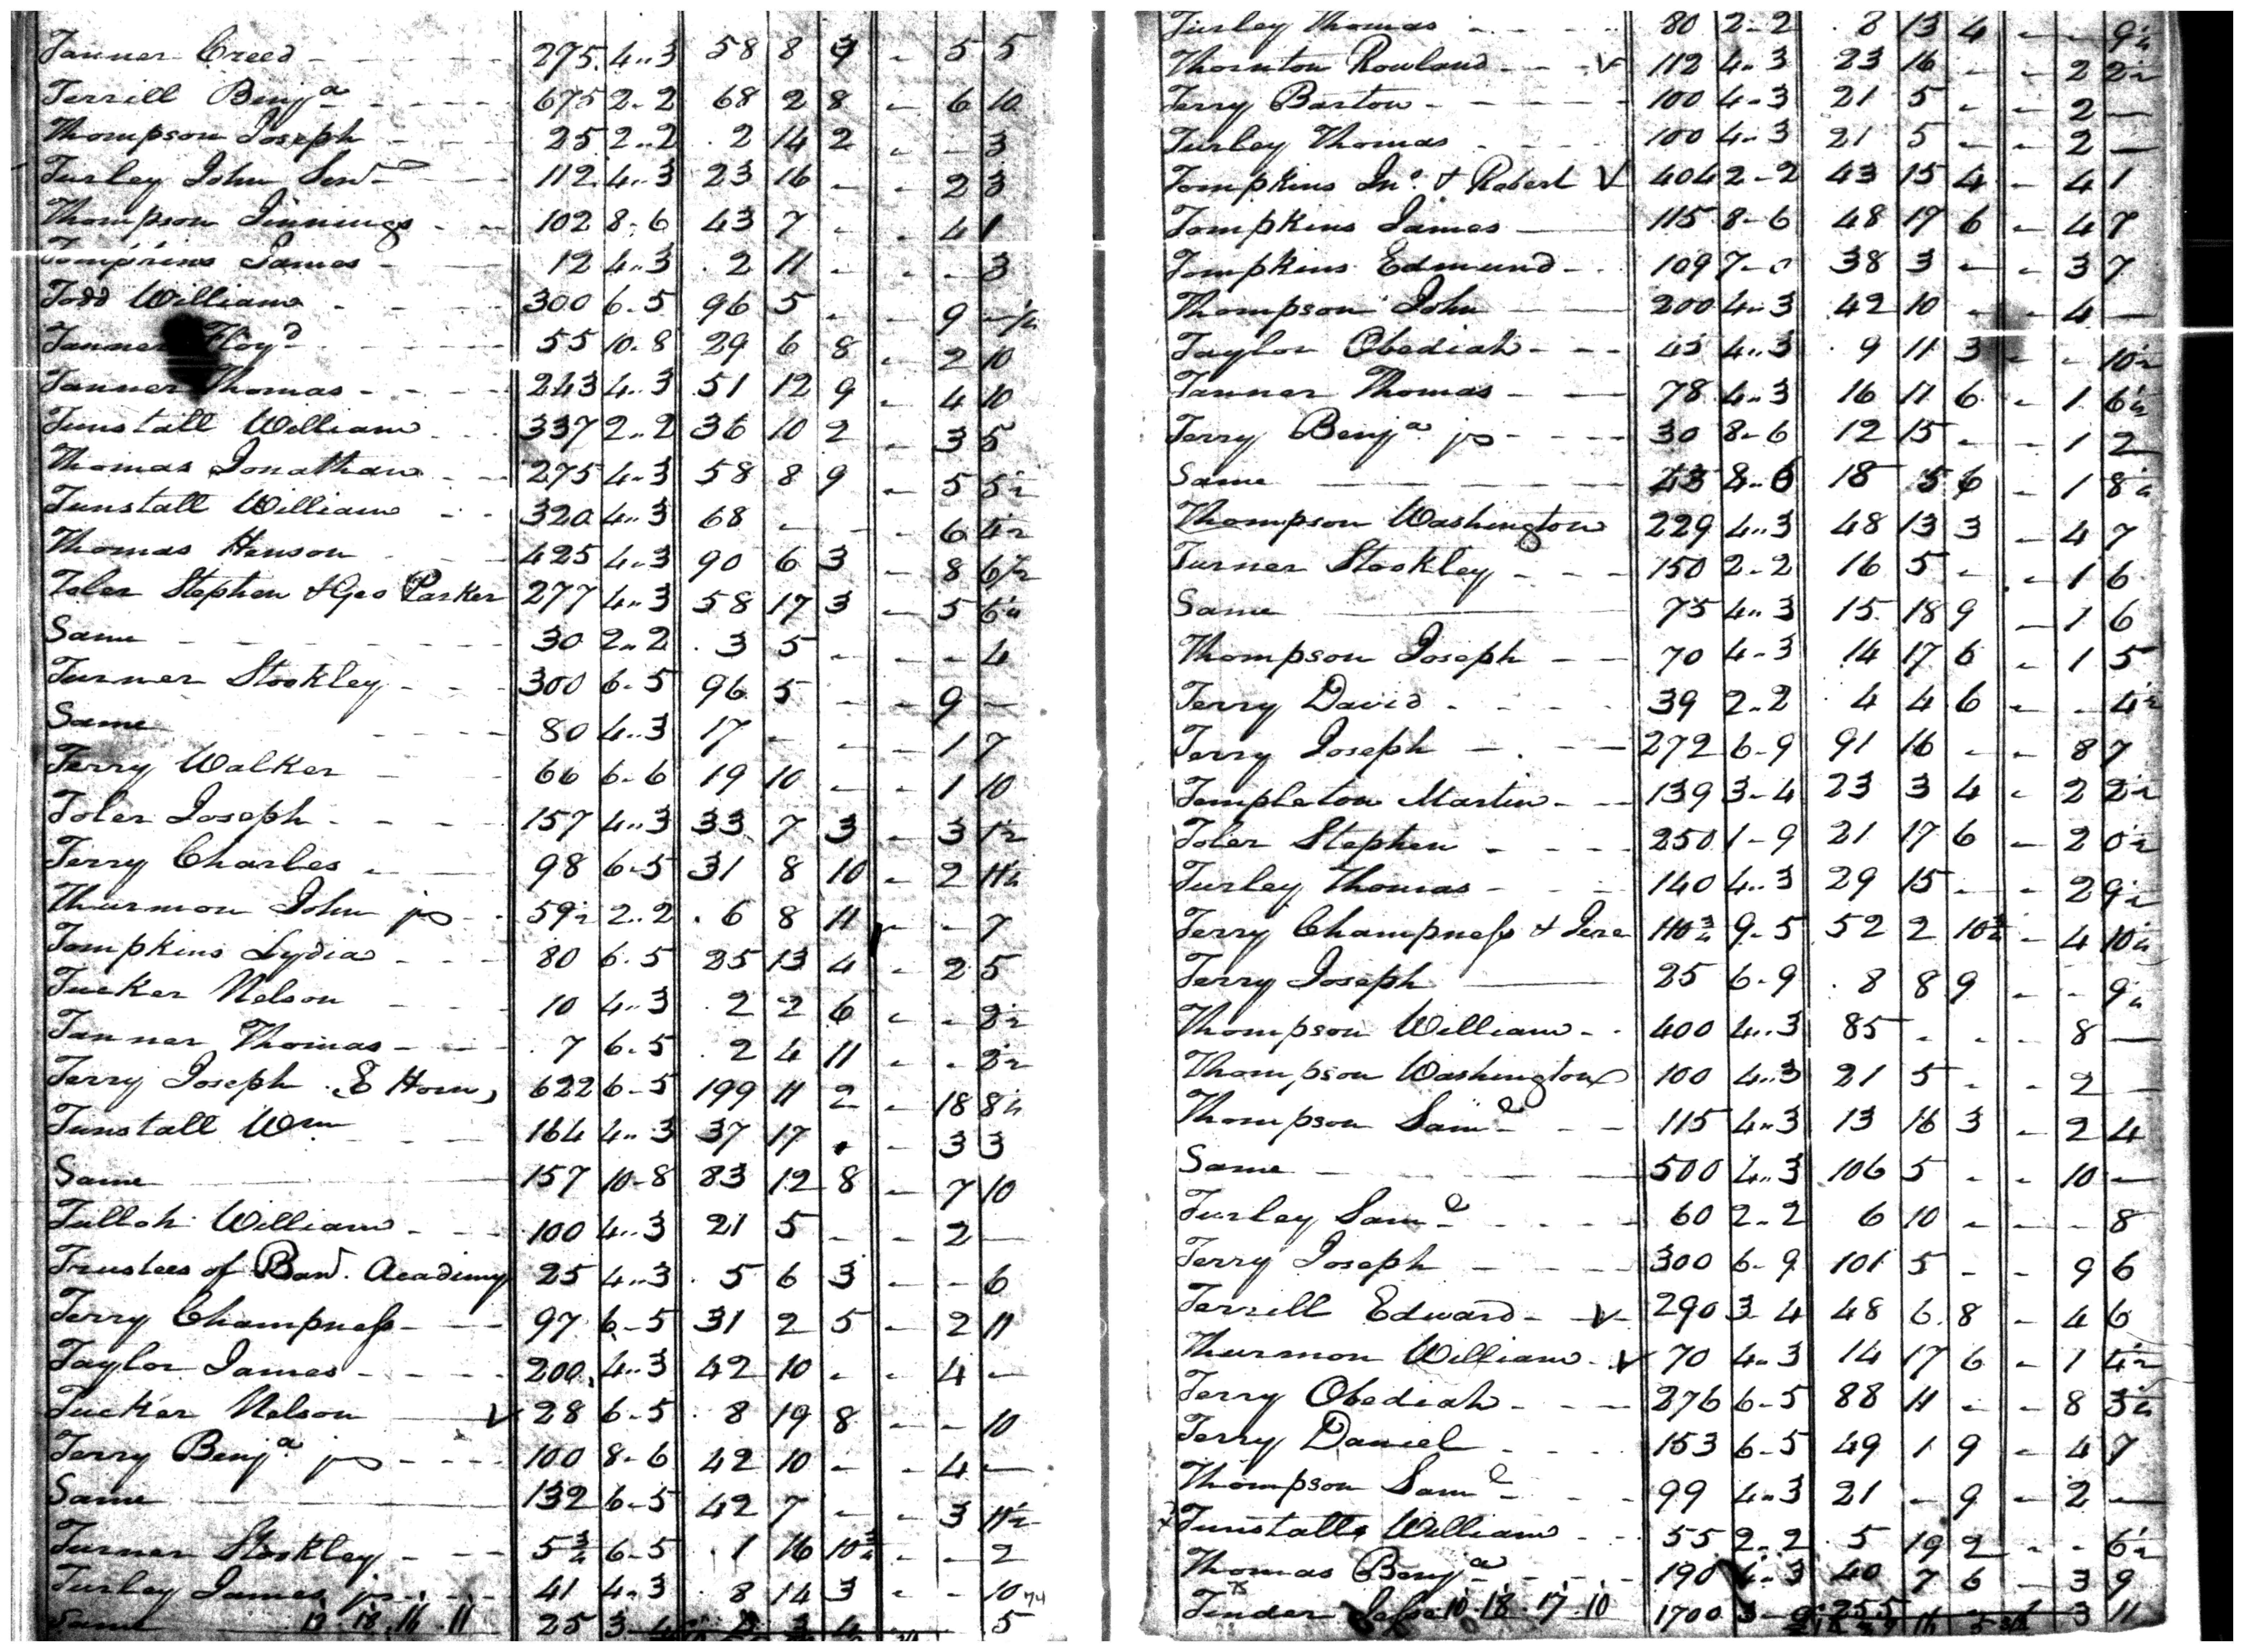 Tanner Creed - 275 4..3 58 8 9 - 5 5
Terrill Benjª - 675 2..2 68 2 8 - 6 10
Thompson Joseph - 25 2..2 2 14 2 - - 3
Turley John Senr - 112 4..3 23 16 - - 2 3
Thompson Jinnings - 102 8..6 43 7 - - 4 1
Tompkins James - 12 4..3 2 11 - - - 3
Todd William - 300 6..5 96 5 - - 9 - ½
Tanner Floyd - 55 10..8 29 6 8 - 2 10
Tanner Thomas - 243 4..3 51 12 9 - 4 10
Tunstall William - 337 2..2 36 10 2 - 3 5
Thomas Jonathan - 275 4..3 58 8 9 - 5 5½
Tunstall William - 320 4..3 68 - - - 6 4½
Thomas Henson - 425 4..3 90 6 3 - 8 6½
Toler Stephen & Geo Parker 277 4..3 58 17 3 - 5 6½
Same - 30 2..2 3 5 - - - 4
Turner Stokley - 300 6..5 96 5 - - 9 -
Same - 80 4..3 17 - - - 1 7
Terry Walker - 60 6..6 19 10 - - 1 10
Toler Joseph - 157 4..3 33 7 3 - 3 1½
Terry Charles - 98 6..5 31 8 10 - 2 11½
Thurmon John jr - 59½ 2..2 6 8 11 - - 7
Tompkins Lydia - 80 6..5 25 13 4 - 2 5
Tucker Nelson - 10 4..3 2 2 6 - - 2½
Tanner Thomas - 7 6..5 2 4 11 - - 2½
Terry Joseph E Horn, 622 6..5 199 11 2 - 18 8½
Tunstall Wm - 164 4..3 37 17 - - 3 3
Same - 157 10..8 83 12 8 - 7 10
Tulloh William - 100 4..3 21 5 - - 2 -
Trustees of Ban. Academy 25 4..3 5 6 3 - - 6
Terry Champness - 97 6..5 31 2 5 - 2 11
Taylor James - 200 4..3 42 10 - - 4 -
Tucker Nelson - V 28 6..5 8 19 8 - - 10
Terry Benjª jr - 100 8..6 42 10 - - 4 -
Same - 132 6..5 42 7 - - 3 11½
Turner Stokley - 5¾ 6..5 1 16 10¾ - - 2
Turley James jr - 41 4..3 8 14 3 - - 10
Same 12. 18. 16. 11 25 3..4 5
Turley Thomas - 80 2..2 8 13 4 - - 9½
Thornton Rowland - V 112 4..3 23 16 - - 2 2½
Terry Barton - 100 4..3 21 5 - - 2 -
Turley Thomas - 100 4..3 21 5 - - 2 -
Tompkins Jnº. & Robert V 404 2..2 43 15 4 - 4 1
Tompkins James - 115 8..6 48 17 6 - 4 7
Tompkins Edmund - 109 7..0 38 3 - - 3 7
Thompson John - 200 4..3 42 10 - - 4 -
Taylor Obediah - 45 4..3 9 11 3 - - 10½
Tanner Thomas - 78 4..3 16 11 6 - 1 6½
Terry Benjª jr - 30 8..6 12 15 - - 1 2
Same - 43 8..6 18 5 6 - 1 8½
Thompson Washington 229 4..3 48 13 3 - 4 7
Turner Stokley - 150 2..2 16 5 - - 1 6
Same - 75 4..3 15 18 9 - 1 6
Thompson Joseph - 70 4..3 14 17 6 - 1 5
Terry David - 39 2..2 4 4 6 - - 4½
Terry Joseph - 272 6..9 91 16 - - 8 7
Templeton Martin - 139 3..4 23 3 4 - 2 2½
Toler Stephen - 250 1..9 21 17 6 - 2 0½
Turley Thomas - 140 4..3 29 15 - - 2 9½
Terry Champness & Jere 110¾ 9..5 52 2 10¾ - 4 10½
Terry Joseph - 25 6..9 8 8 9 - - 9½
Thompson William - 400 4..3 85 - - - 8 -
Thompson Washington 100 4..3 21 5 - - 2 -
Thompson Saml - 115 4..3 13 16 3 - 2 4
Same - 500 4..3 106 5 - - 10 -
Turley Saml - 60 2..2 6 10 - - - 8
Terry Joseph - 300 6..9 101 5 - - 9 6
Terrill Edward - V 290 3..4 48 6 8 - 4 6
Thurmon William - V 70 4..3 14 17 6 - 1 4½
Terry Obediah - 276 6..5 88 11 - - 8 3½
Terry Daniel - 153 6..5 49 1 9 - 4 7
Thompson Saml - 99 4..3 21 - 9 - 2 -
Tunstall William - 55 2..2 5 19 2 - - 6½
Thomas Benjª - 190 4..3 40 7 6 - 3 9
Tinder 10. 18. 17. 10 1700 3 11